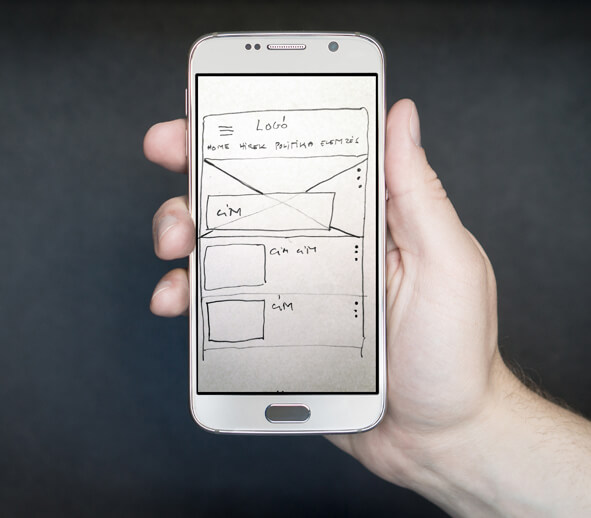 LOGÓ
HOME HÍREK POLITIKA ELEMZÉS
CÍM
CÍM CÍM
CÍM